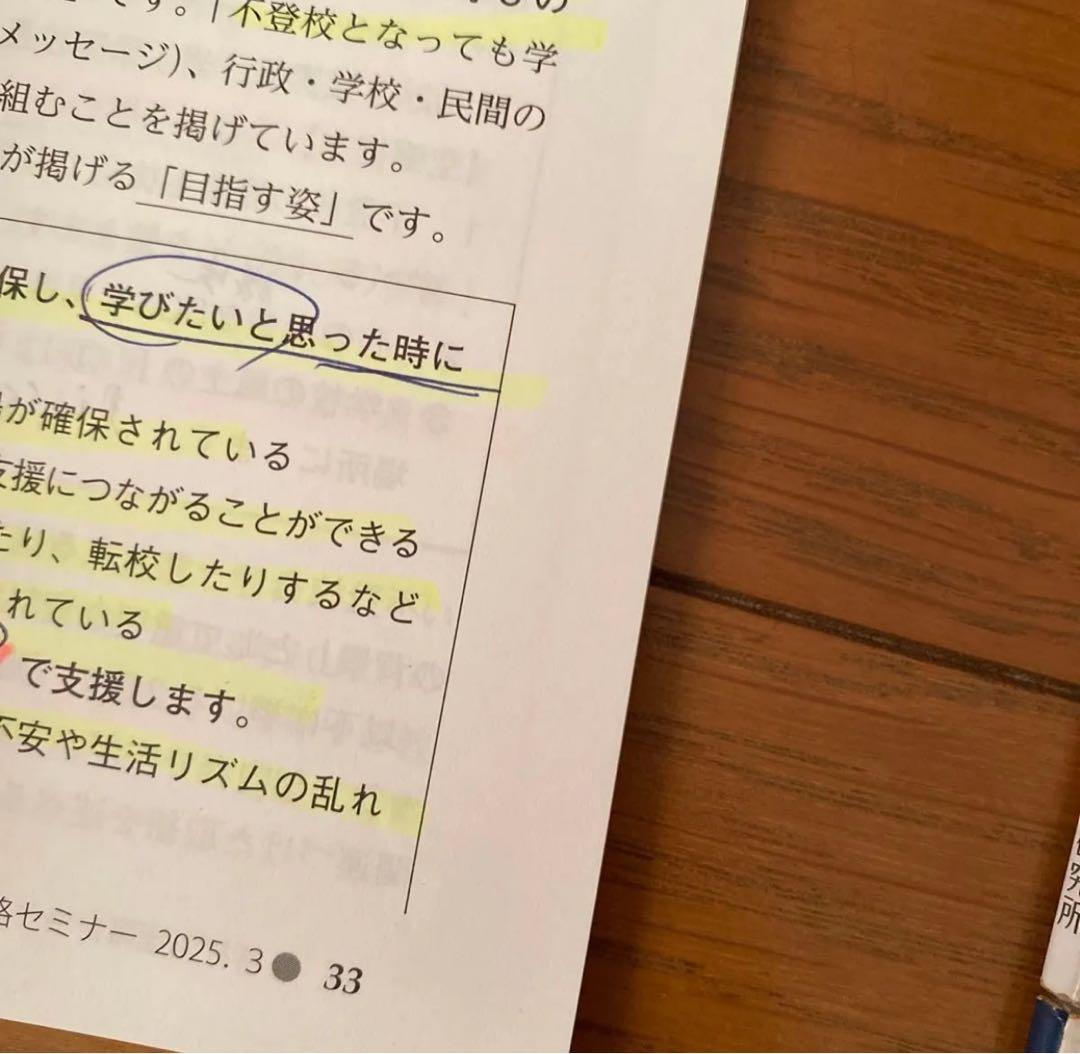 です。「不登校となっても学
メッセージ)、行政・学校・民間の
組むことを掲げています。
が掲げる「目指す姿」です。
保し、学びたいと思った時に
が確保されている
支援につながることができる
たり、転校したりするなど
れている
で支援します。
不安や生活リズムの乱れ
セミナー 2025. 3● 33
究所